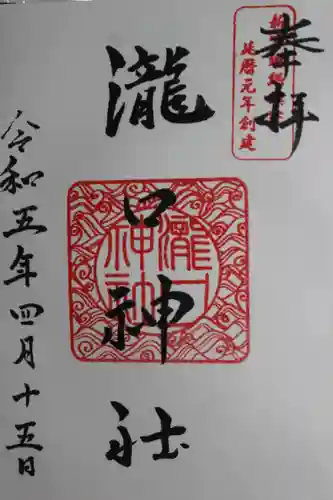 奉拝
延暦元年創建
瀧口神社
令和五年四月十五日